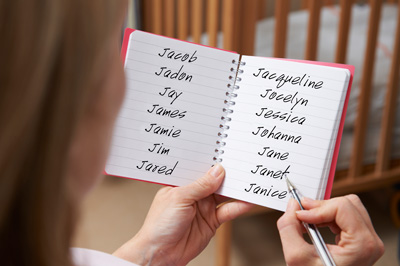 Jacob
Jadon
Jay
James
Jamie
Jim
Jared
Jacqueline
Jocelyn
Jessica
Johanna
Jane
Janet
Janice